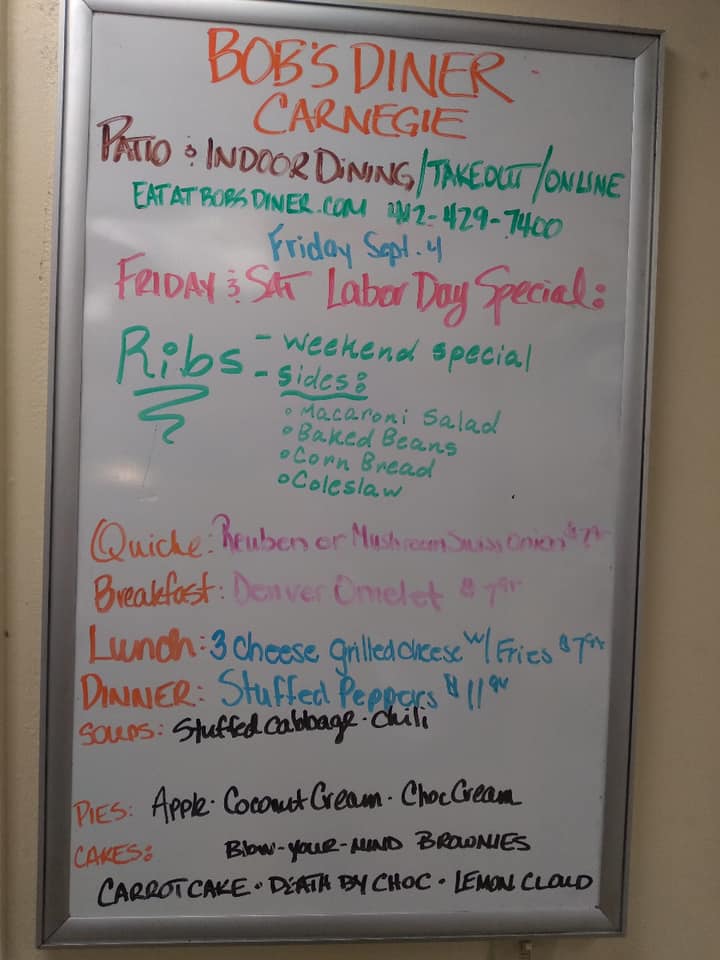 BOB'S DINER
CARNEGIE
PATIO & INDOOR DINING/TAKEOUT/ONLINE
EATATBOBSDINER.COM 412-429-7400
Friday Sept. 4
FRIDAY & SAT Labor Day Special:
Ribs - weekend special
- Sides:
• Macaroni Salad
• Baked Beans
• Corn Bread
• Coleslaw
Quiche: Reuben or Mushroom Swiss Onion $7
Breakfast: Denver Omelet $7
Lunch: 3 cheese grilled cheese w/ Fries $7
DINNER: Stuffed Peppers $11
SOUPS: Stuffed Cabbage · Chili
PIES: Apple · Coconut Cream · Choc Cream
CAKES: BLOW-YOUR-MIND BROWNIES
CARROT CAKE · DEATH BY CHOC · LEMON CLOUD